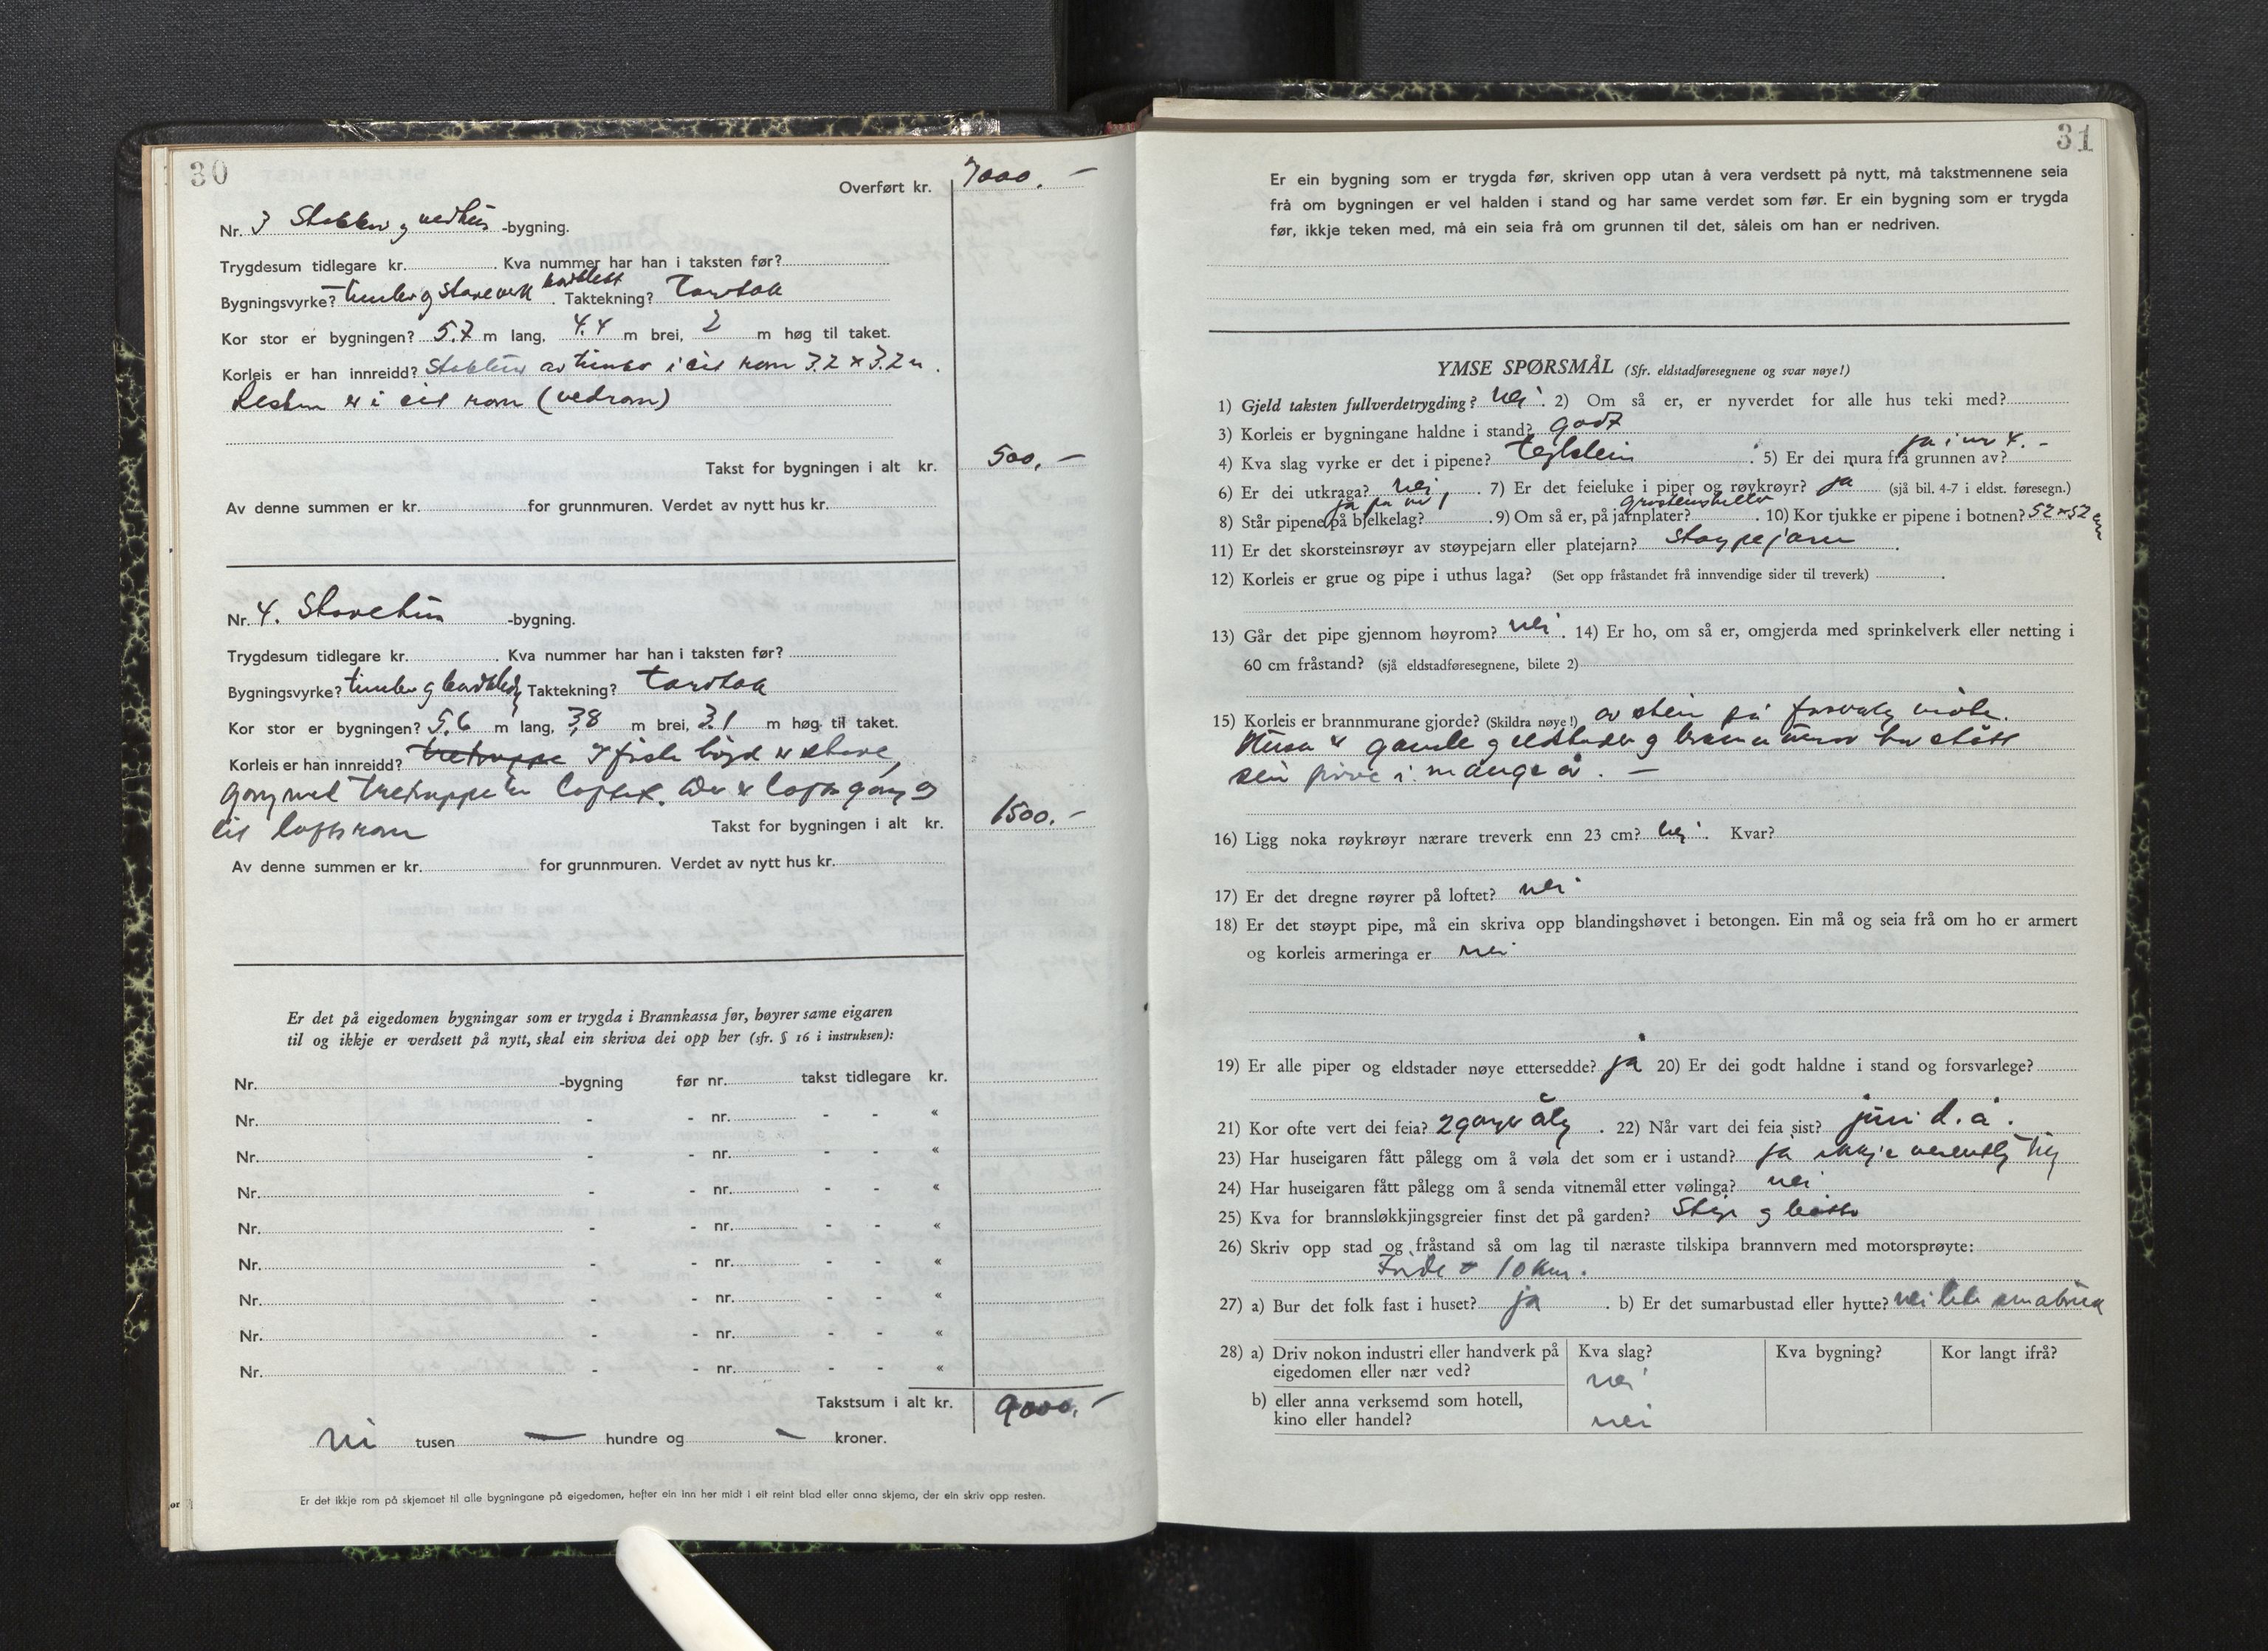 30
Overført kr. 7000.-
Nr. 3 Stabbur og vedhus -bygning.
Trygdesum tidlegare kr. . Kva nummer har han i taksten før?
Bygningsvyrke? timber og stavverk bordkledt . Taktekning? Torvtak
Kor stor er bygningen? 5.7 m lang, 4.4 m brei, 2 m høg til taket.
Korleis er han innreidd? Stabbur av timber i eit rom 3.2 x 3.2 m.
Resten er i eit rom (vedrom)
Takst for bygningen i alt kr. 500.-
Av denne summen er kr. for grunnmuren. Verdet av nytt hus kr.
Nr. 4. Stovehus -bygning.
Trygdesum tidlegare kr. . Kva nummer har han i taksten før?
Bygningsvyrke? timber og bordkledt Taktekning? torvtak
Kor stor er bygningen? 5.6 m lang, 3,8 m brei, 3.1 m høg til taket.
Korleis er han innreidd? tretrappe I fyrste høgd er stove,
gang med tretrappe til loftet. Der er loftsgang og
eit loftsrom
Takst for bygningen i alt kr. 1500.-
Av denne summen er kr. for grunnmuren. Verdet av nytt hus kr.
Er det på eigedomen bygningar som er trygda i Brannkassa før, høyrer same eigaren
til og ikkje er verdsett på nytt, skal ein skriva dei opp her (sfr. § 16 i instruksen):
Nr. -bygning før nr. takst tidlegare kr.
Nr. - - nr. - - «
Nr. - - nr. - - «
Nr. - - nr. - - «
Nr. - - nr. - - «
Nr. - - nr. - - «
Nr. - - nr. - - «
Nr. - - nr. - - «
Nr. - - nr. - - «
Takstsum i alt kr. 9000.-
ni tusen — hundre og — kroner.
Er det ikkje rom på skjemaet til alle bygningane på eigedomen, hefter ein inn her midt i eit reint blad eller anna skjema, der ein skriv opp resten.
31
Er ein bygning som er trygda før, skriven opp utan å vera verdsett på nytt, må takstmennene seia
frå om bygningen er vel halden i stand og har same verdet som før. Er ein bygning som er trygda
før, ikkje teken med, må ein seia frå om grunnen til det, såleis om han er nedriven.
YMSE SPØRSMÅL (Sfr. eldstadføresegnene og svar nøye!)
1) Gjeld taksten fullverdetrygding? nei . 2) Om så er, er nyverdet for alle hus teki med?
3) Korleis er bygningane haldne i stand? godt
4) Kva slag vyrke er det i pipene? teglstein . 5) Er dei mura frå grunnen av? ja i nr 4. -
6) Er dei utkraga? nei . 7) Er det feieluke i piper og røykrøyr? ja (sjå bil. 4-7 i eldst. føresegn.)
8) Står pipene på bjelkelag? ja på nr 1 . 9) Om så er, på jarnplater? . 10) Kor tjukke er pipene i botnen? 52 x 52 cm
11) Er det skorsteinsrøyr av støypejarn eller platejarn? støypejarn .
12) Korleis er grue og pipe i uthus laga? (Set opp fråstandet frå innvendige sider til treverk) .
13) Går det pipe gjennom høyrom? nei . 14) Er ho, om så er, omgjerda med sprinkelverk eller netting i
60 cm fråstand? (sjå eldstadføresegnene, bilete 2)
15) Korleis er brannmurane gjorde? (Skildra nøye!) av stein på forsvarlig måte.
Husa er gamle og eldstader og brannmurar har stått
sin prøve i mange år. -
16) Ligg noka røykrøyr nærare treverk enn 23 cm? nei . Kvar?
17) Er det dregne røyrer på loftet? nei
18) Er det støypt pipe, må ein skriva opp blandingshøvet i betongen. Ein må og seia frå om ho er armert
og korleis armeringa er nei
19) Er alle piper og eldstader nøye ettersedde? ja 20) Er dei godt haldne i stand og forsvarlege?
21) Kor ofte vert dei feia? 2 ganger årlig . 22) Når vart dei feia sist? juni d. å.
23) Har huseigaren fått pålegg om å vøla det som er i ustand? ja ikkje
24) Har huseigaren fått pålegg om å senda vitnemål etter vølinga? nei
25) Kva for brannsløkkjingsgreier finst det på garden? Stige og bøtter
26) Skriv opp stad og fråstand så om lag til næraste tilskipa brannvern med motorsprøyte:
Førde 10 km.
27) a) Bur det folk fast i huset? ja . b) Er det sumarbustad eller hytte? nei lite småbruk
28) a) Driv nokon industri eller handverk på eigedomen eller nær ved? Kva slag? nei Kva bygning? Kor langt ifrå?
b) eller anna verksemd som hotell, kino eller handel? nei